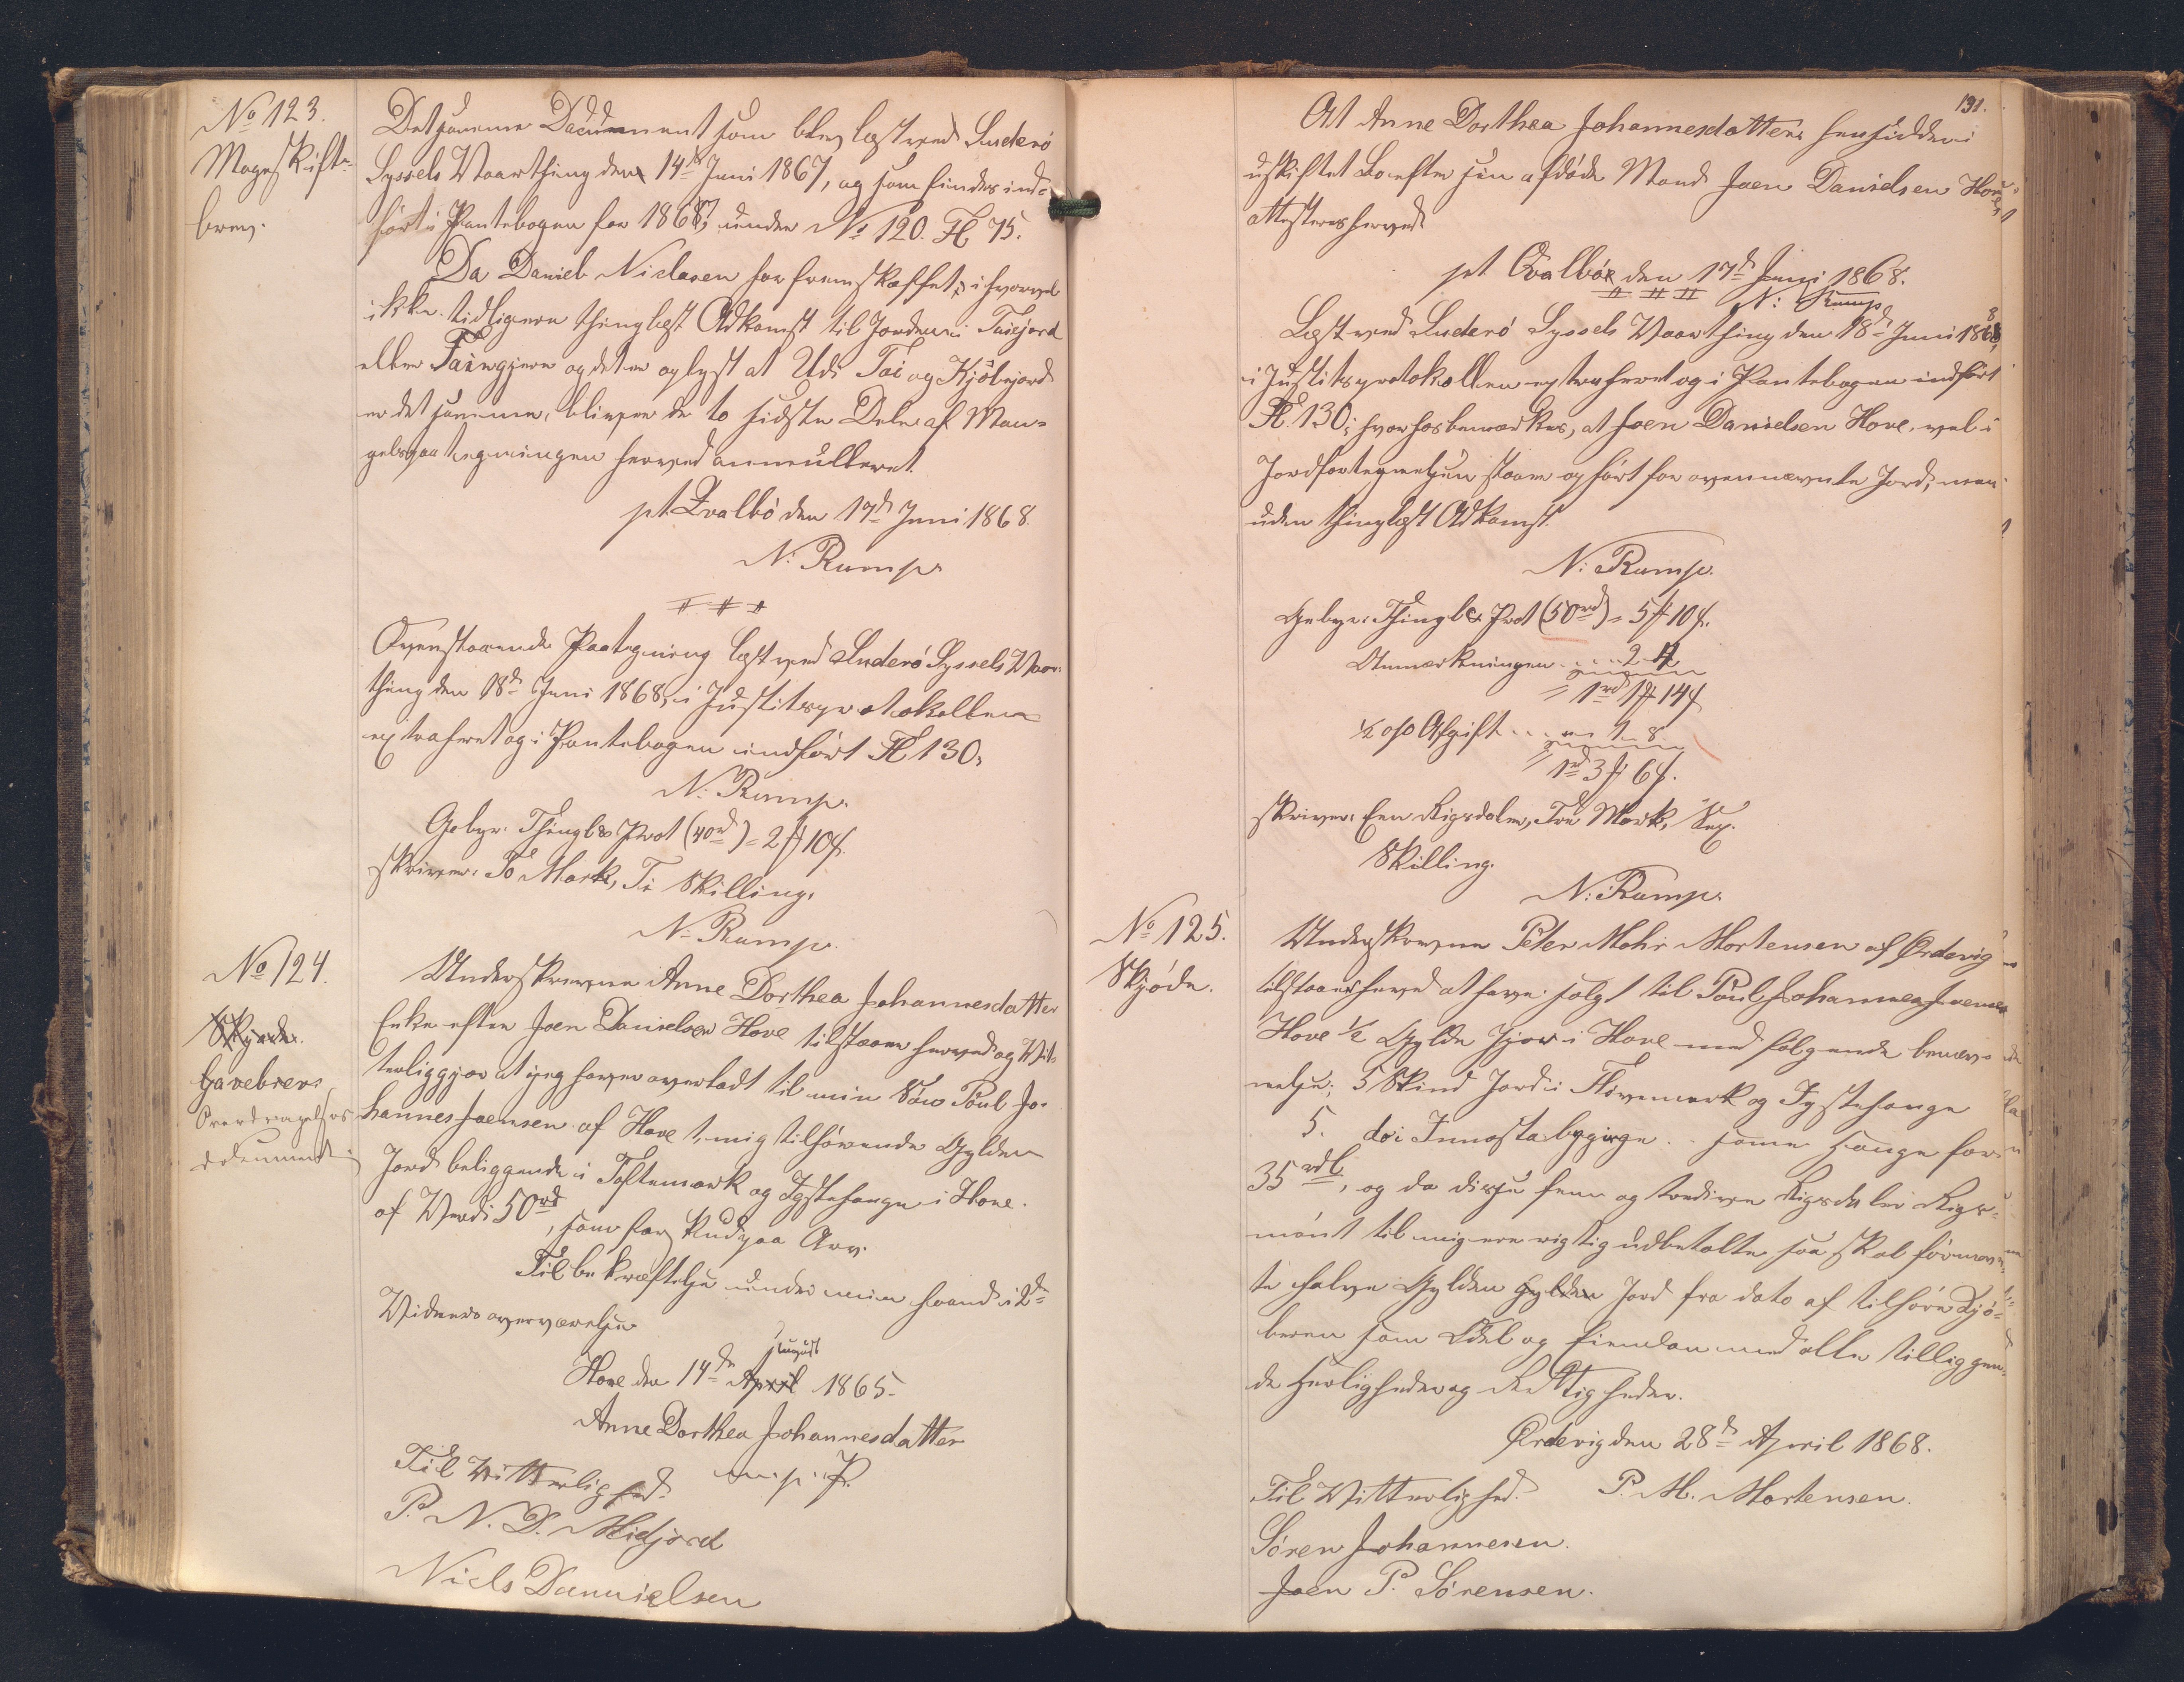 No 123.
Mageskifte-
brev.
Detsamme Document som blev læst ved Suderö
Syssels Vaarthing den 14de Juni 1867, og som findes ind-
fört i Pantebogen for 1867, under No 120. Fl 75.
Da Daniel Niclasen har fremskaffet, i hvorvel
ikke tidligere thinglæst Adkomst til Jorden i
eller og det er oplyst at Udi Toi og Kjölnjord
er det samme, bliver de to sidste Dele af Man-
gelspaategningen herved annulleret.
pt Qvalbö den 17de Juni 1868.
N: Rump.
Ovenstaaende Paategning læst ved Suderö Syssels Vaar-
thing den 18de Juni 1868, i Justitsprotokollen
extraheret og i Pantebogen indfört Fl 130.
N: Rump.
Gebyr: Thingl & Prot (40rd) = 2 # 10 ß.
skriver: To Mark, Ti Skilling.
N: Rump.
No 124.
Skjøde.
Gavebrev.
Overdragelses
document
Underskrevne Anne Dorthea Johannesdatter
Enke efter Joen Danielsen Hove tilstaaer herved og Vit-
terliggjør at jeg haver overladt til min Søn Poul Jo-
hannes Joensen af Hove 1, mig tilhörende Gylden
Jord beliggende i Toftemark og Systehauge i Hove.
af Værdi 50 rd, som forskud paa Arv.
Til bekræftelse under min haand i 2de
Vidners overværelse
Hove den 14de April August 1865.
Anne Dorthea Johannesdatter
m. p. P.
Til Vitterlighed.
P. N. D. Midjord
Niels Dannielsen
131.
At Anne Dorthea Johannesdatter hensidder i
uskiftet Bo efter sin afdöde Mand Joen Danielsen Hove,
attesteres herved
pt Qvalbö den 17de Juni 1868.
N: Rump
Læst ved Suderö Syssels Vaarthing den 18de Juni 1868,
i Justitsprotokollen extraheret og i Pantebogen indfört
Fl. 130; hvorhos bemærkes, at Joen Danielsen Hove, vel i
Jordfortegnelsen staaer opfört for ovennævnte Jord, men
uden thinglæst Adkomst.
N: Rump.
Gebyr: Thingl & Prot (50rd) = 5 # 10 ß.
Anmærkningen .... 2 - 4
= 1rd 1# 14ß
½ o/o Afgift ... 1 - 8
= 1rd 3# 6ß.
skriver: Een Rigsdaler, Tre Mark, Sex
Skilling.
N: Rump.
No 125.
Skjöde.
Underskrevne Peter Mohr Mortensen af Ørdevig
tilstaaer herved at have solgt til Poul Johannes Joensen
Hove ½ Gylden Jord i Hove med følgende benæv-
nelse; 5 Skind Jord i Høvemark og Systehauge
5. do i Innastabygge .. samme Hauge for
35 rdl, og da disse fem og tredive Rigsdaler Rigs-
mönt til mig ere rigtig udbetalte saa skal fornævn-
te halve Gylden Gylden Jord fra dato af tilhöre Kjö-
beren som Odel og Eiendom med alle tilliggen-
de Herligheder og Rettigheder.
Ørdevig den 28de April 1868.
Til Vitterlighed. P. M. Mortensen.
Sören Johannesen.
Joen P. Sörensen.